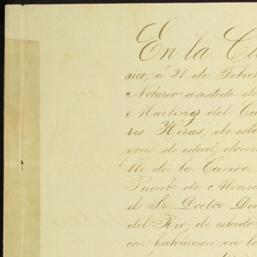 En la Ci
xico, á 21 de Febre
Notario asistido de
Martinez del Ca
res Heras, de est
rone de edad, dom
lle de la Canoa
Puente de Alvara
el Sr. Doctor Don
del Rio, de estado
con habitacion en la